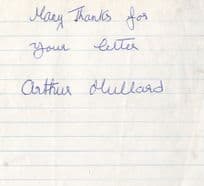 Many Thanks for
your letter
Arthur Mullard